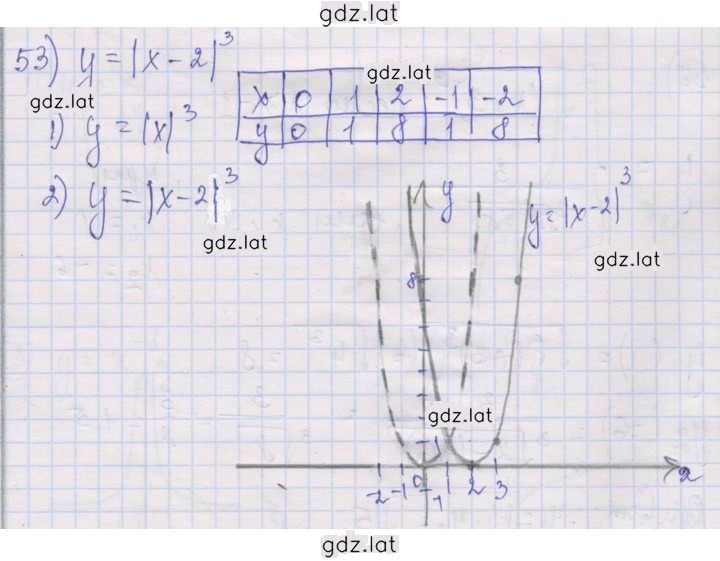 gdz.lat
53) y = |x - 2|³
gdz.lat
x 0 1 2 -1 -2
y 0 1 8 1 8
gdz.lat
1) y = |x|³
2) y = |x - 2|³
gdz.lat
y
y = |x - 2|³
gdz.lat
8
gdz.lat
1
-2 -1 0 1 2 3 x
gdz.lat